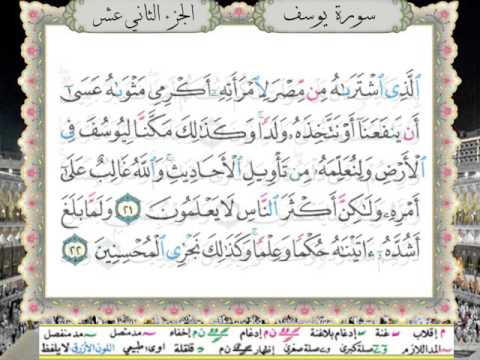 سورة يوسف
الجزء الثاني عشر
ٱلَّذِى ٱشْتَرَىٰهُ مِن مِّصْرَ لِٱمْرَأَتِهِۦٓ أَكْرِمِى مَثْوَىٰهُ عَسَىٰٓ
أَن يَنفَعَنَآ أَوْ نَتَّخِذَهُۥ وَلَدًا ۚ وَكَذَٰلِكَ مَكَّنَّا لِيُوسُفَ فِى
ٱلْأَرْضِ وَلِنُعَلِّمَهُۥ مِن تَأْوِيلِ ٱلْأَحَادِيثِ ۚ وَٱللَّهُ غَالِبٌ عَلَىٰٓ
أَمْرِهِۦ وَلَٰكِنَّ أَكْثَرَ ٱلنَّاسِ لَا يَعْلَمُونَ ٢١ وَلَمَّا بَلَغَ
أَشُدَّهُۥٓ ءَاتَيْنَٰهُ حُكْمًا وَعِلْمًا ۚ وَكَذَٰلِكَ نَجْزِى ٱلْمُحْسِنِينَ ٢٢
م إقلاب غنة إدغام بلاغنة إدغام إخفاء مد متصل مد منفصل
المد اللازم صلة كبرى صلة صغرى إظهار قلقلة اوى، طبيعي اللون الأزرق لا يلفظ